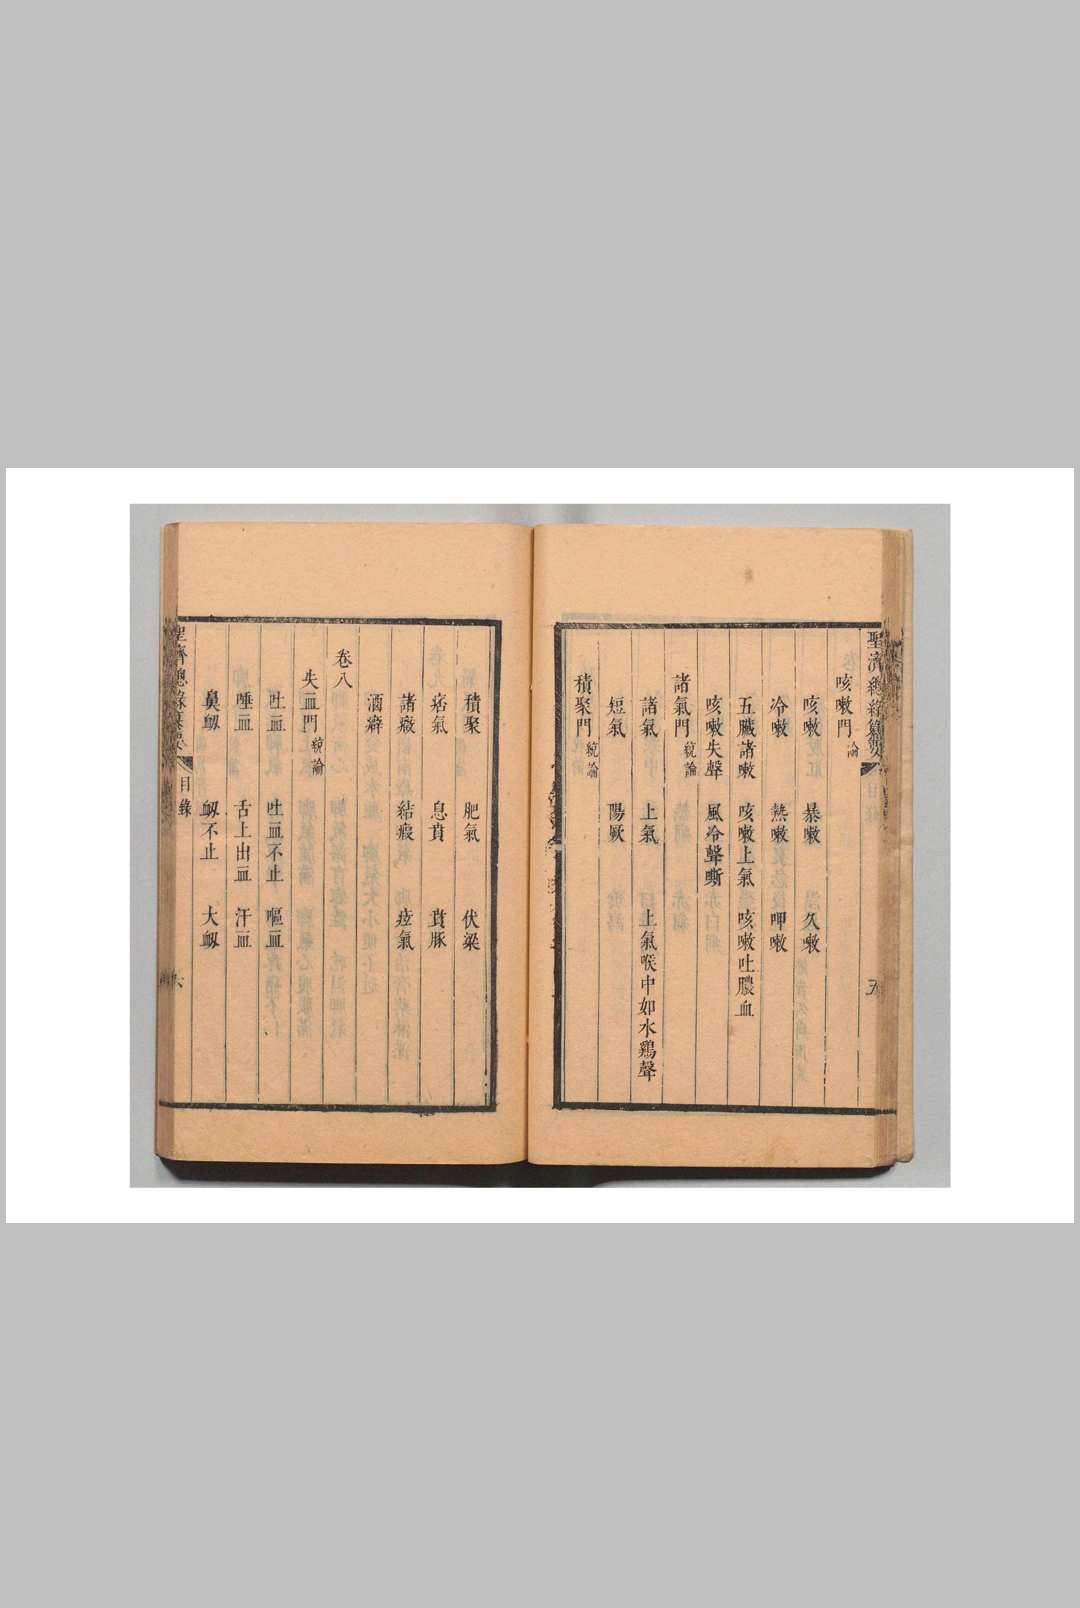 聖濟總錄纂要
目錄
五
咳嗽門論
咳嗽 暴嗽 久嗽
冷嗽 熱嗽 呷嗽
五臟諸嗽 咳嗽上氣 咳嗽吐膿血
咳嗽失聲 風冷聲嘶
諸氣門統論
諸氣 上氣 上氣喉中如水鷄聲
短氣 陽厥
積聚門統論
積聚 肥氣 伏梁
痞氣 息賁 賁豚
諸癥 結瘕 痃氣
酒癖
卷八
失血門統論
吐血 吐血不止 嘔血
唾血 舌上出血 汗血
鼻衂 衂不止 大衂
聖濟總錄纂要
目錄
六